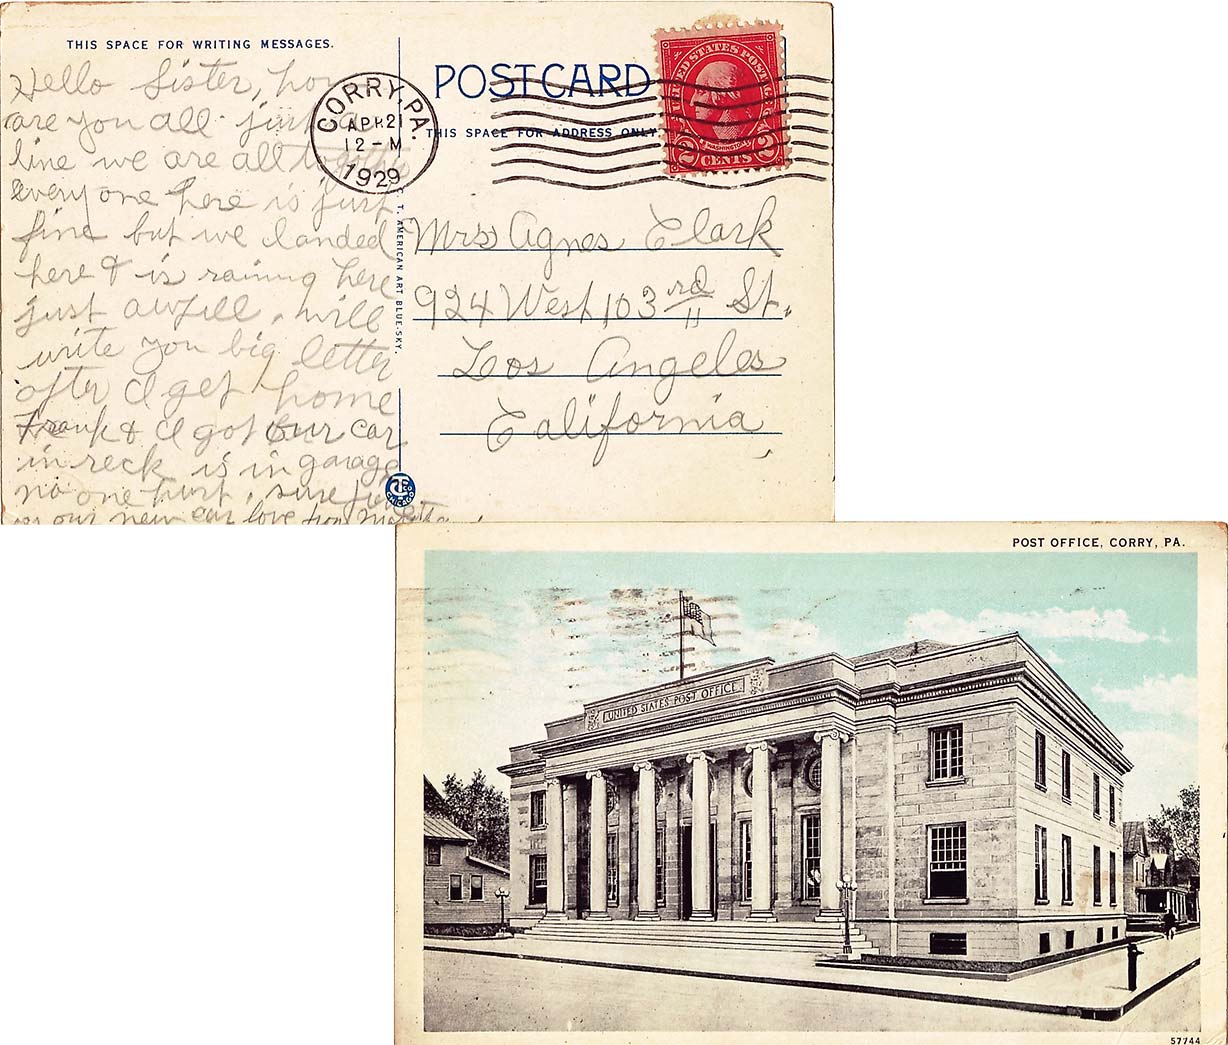 THIS SPACE FOR WRITING MESSAGES.
Hello Sister, how
are you all. just a
line we are all together
everyone here is just
fine but we landed
here & is raining here
just awfill, will
write you big letter
after I get home
Frank & I got our car
in reck is in garage
no one hurt, sure
our new car love from
CORRY, PA.
APR 21
12-M
1929
POST CARD
THIS SPACE FOR ADDRESS ONLY
UNITED STATES POSTAGE
WASHINGTON
2 CENTS 2
C. T. AMERICAN ART BLUE-SKY.
Mrs Agnes Clark
924 West 103rd St.
Los Angeles
California
CHICAGO
POST OFFICE, CORRY, PA.
UNITED STATES POST OFFICE
57744